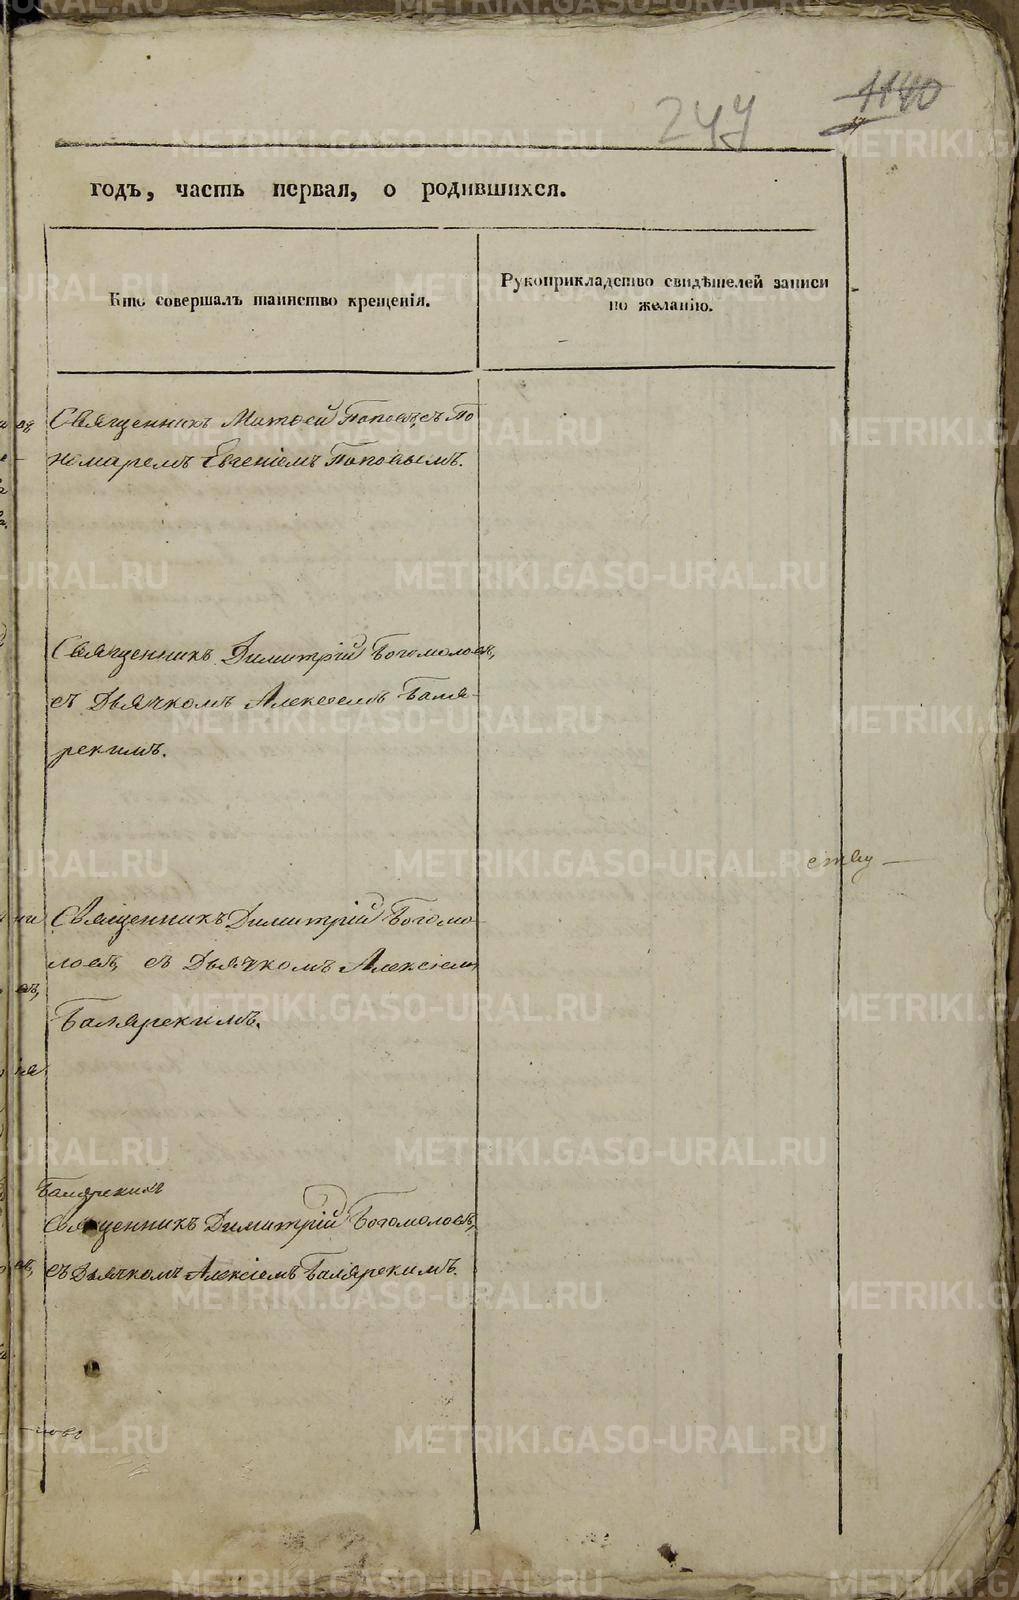 247
1140
годъ, часть первая, о родившихся.
Кто совершалъ таинство крещенія.
Рукоприкладство свидѣтелей записи
по желанію.
Священникъ Матѳей Поповъ, съ По
номаремъ Евгеніемъ Поповымъ.
Священникъ Димитрій Богомоловъ,
съ Дьячкомъ Алексѣемъ Баля-
рскимъ.
ству
Священникъ Димитрій Богомо-
ловъ, съ Дьячкомъ Алексіемъ
Балярскимъ.
Балярскимъ
Священникъ Димитрій Богомоловъ,
съ Дьячкомъ Алексіемъ Балярскимъ.
METRIKI.GASO-URAL.RU